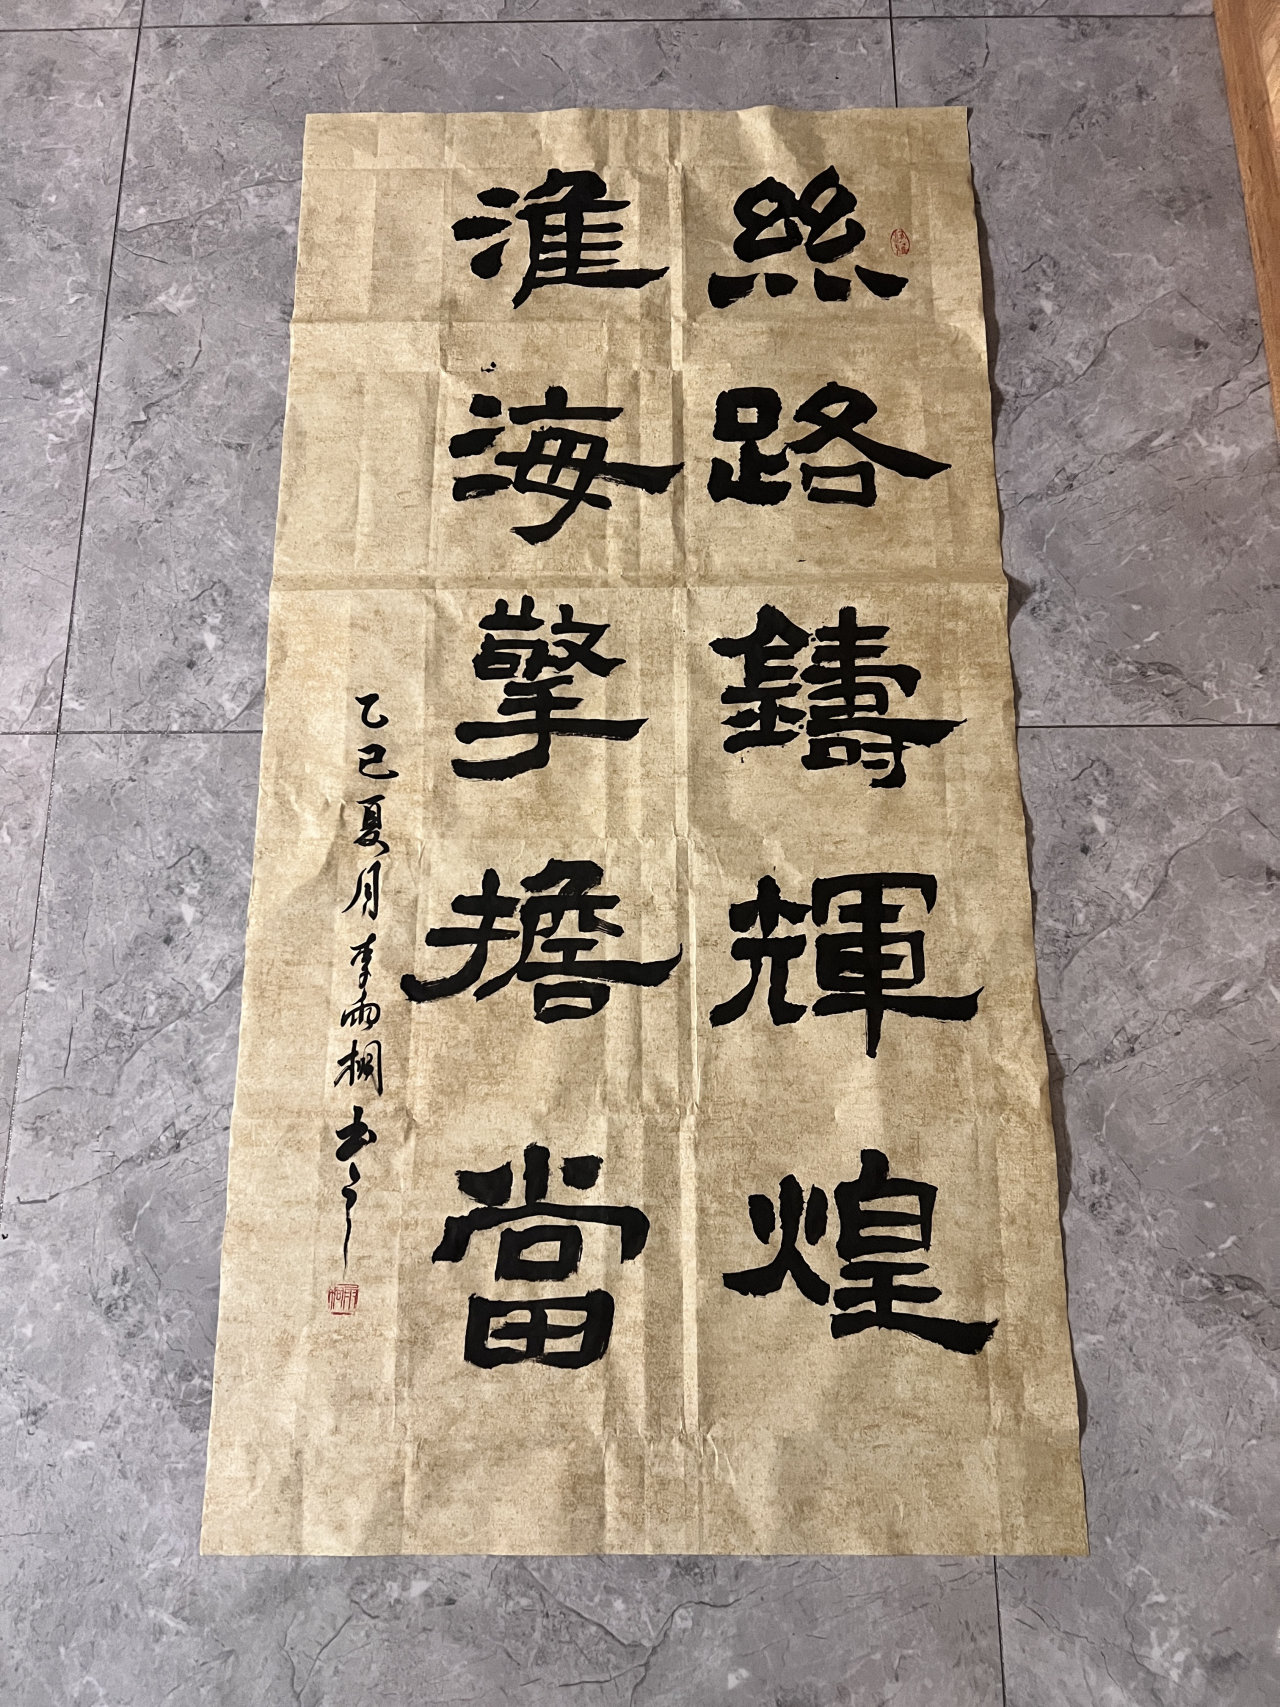 絲路鑄輝煌
淮海擎擔當
乙巳夏月李雨桐书